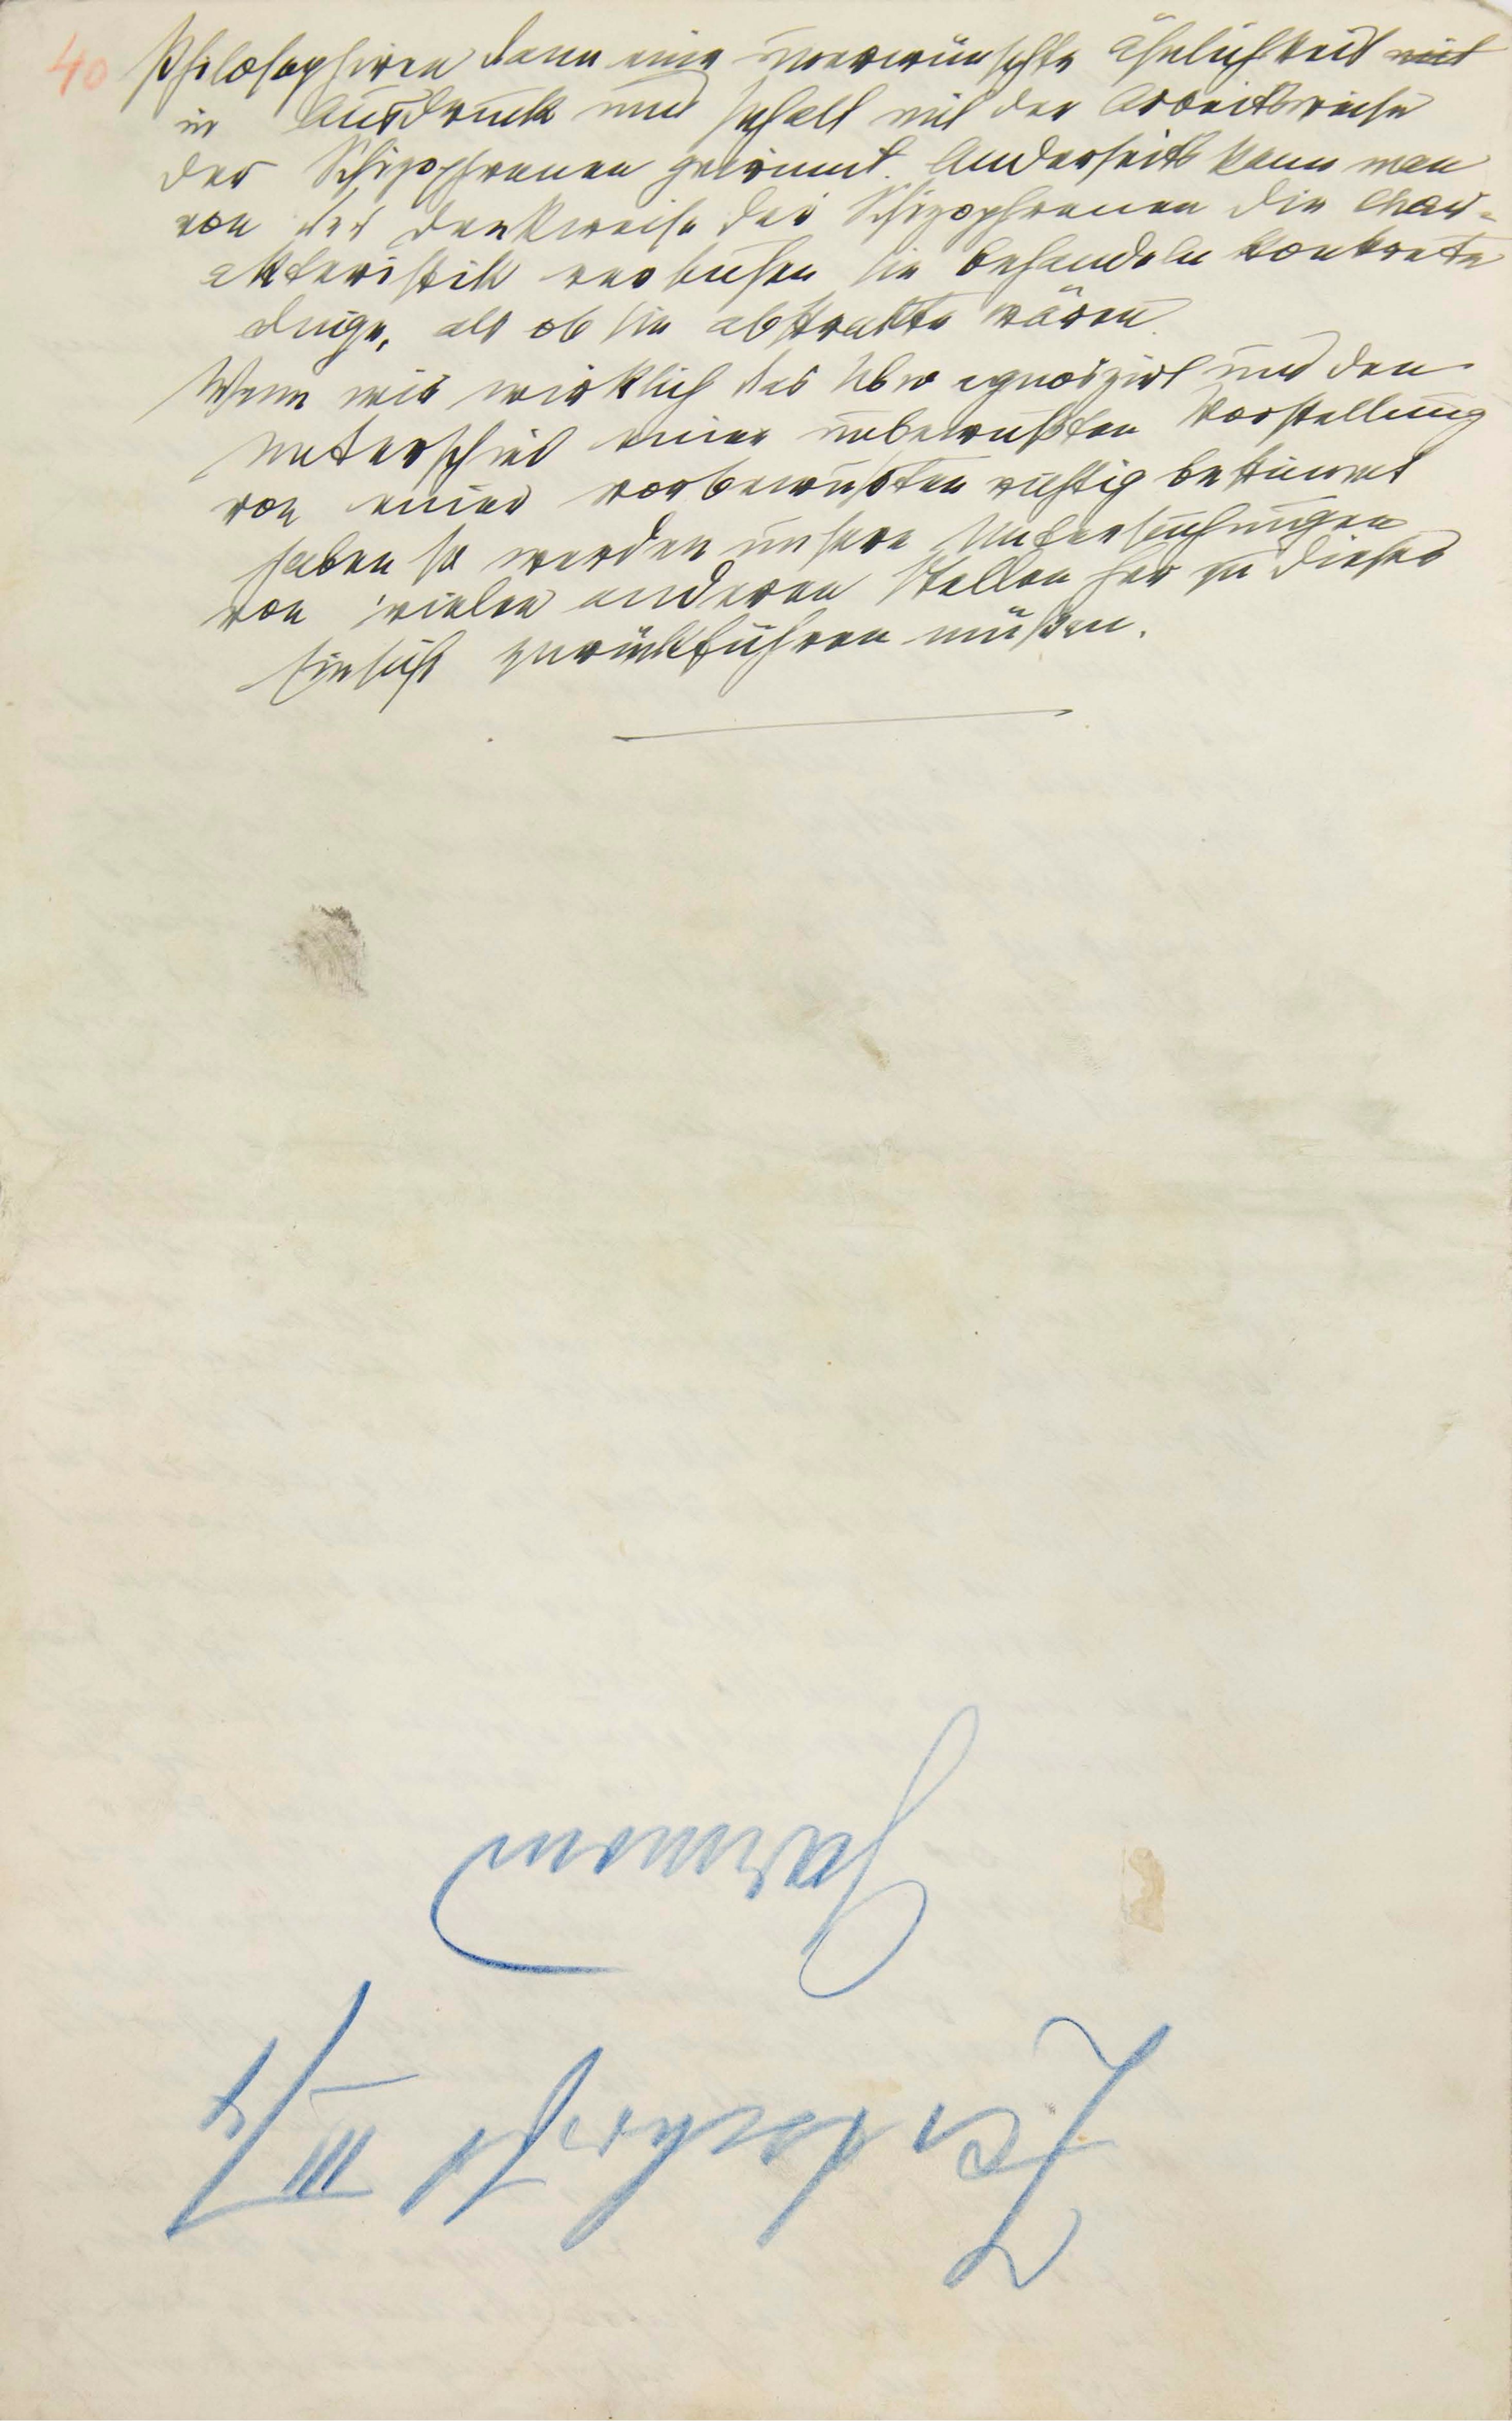 40 Philosophiren dann eine unerwünschte Ähnlichkeit mit
in Ausdruck und Inhalt mit der Arbeitsweise
der Schizophrenen gewinnt. Anderseits kann man
von der Denkweise der Schizophrenen die Char-
akteristik versuchen sie behandeln konkrete
Dinge, als ob sie abstrakte wären
Wenn wir wirklich das Ubw agnoszirt und den
Unterschied einer unbewußten Vorstellung
von einer vorbewußten richtig bestimmt
haben so werden unsere Untersuchungen
von vielen anderen Stellen her zu dieser
Einsicht zurückführen müßen.
Zeitschrift III/